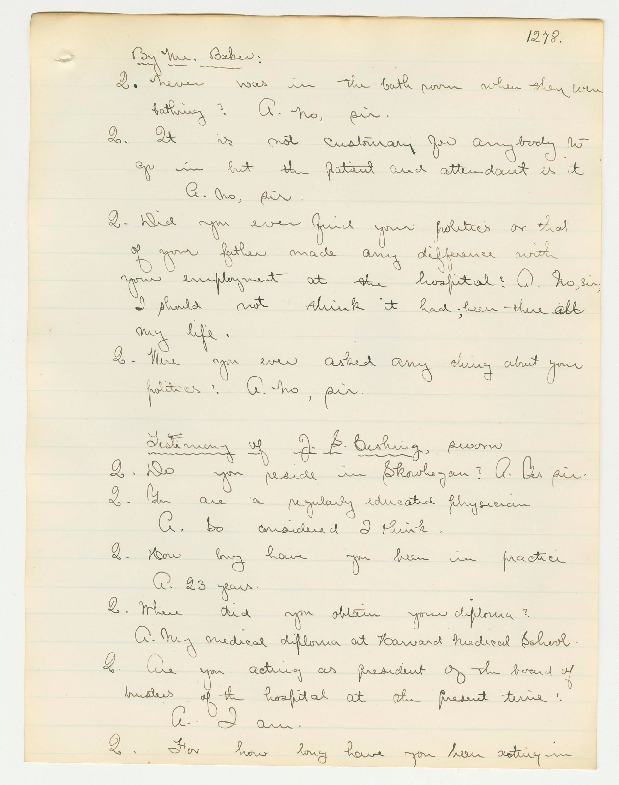 1278.
By Mr. Baker:
Q. Never was in the bath room when they were
bathing? A. No, sir.
Q. It is not customary for anybody to
go in but the patient and attendant is it
A. No, sir.
Q. Did you ever find your politics or that
of your father made any difference with
your employment at the hospital? A. No, sir,
I should not think it had; been there all
my life.
Q. Were you ever asked any thing about your
politics? A. No, sir.
Testimony of J. S. Cushing, sworn
Q. Do you reside in Skowhegan? A. Yes sir.
Q. You are a regularly educated physician
A. So considered I think.
Q. How long have you been in practice
A. 23 years.
Q. Where did you obtain your diploma?
A. My medical diploma at Harvard Medical School.
Q Are you acting as president of the board of
trustees of the hospital at the present time?
A. I am.
Q. For how long have you been acting in